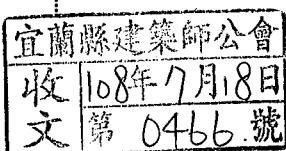 宜蘭縣建築師公會
收文
108年7月18日
第 0466 號